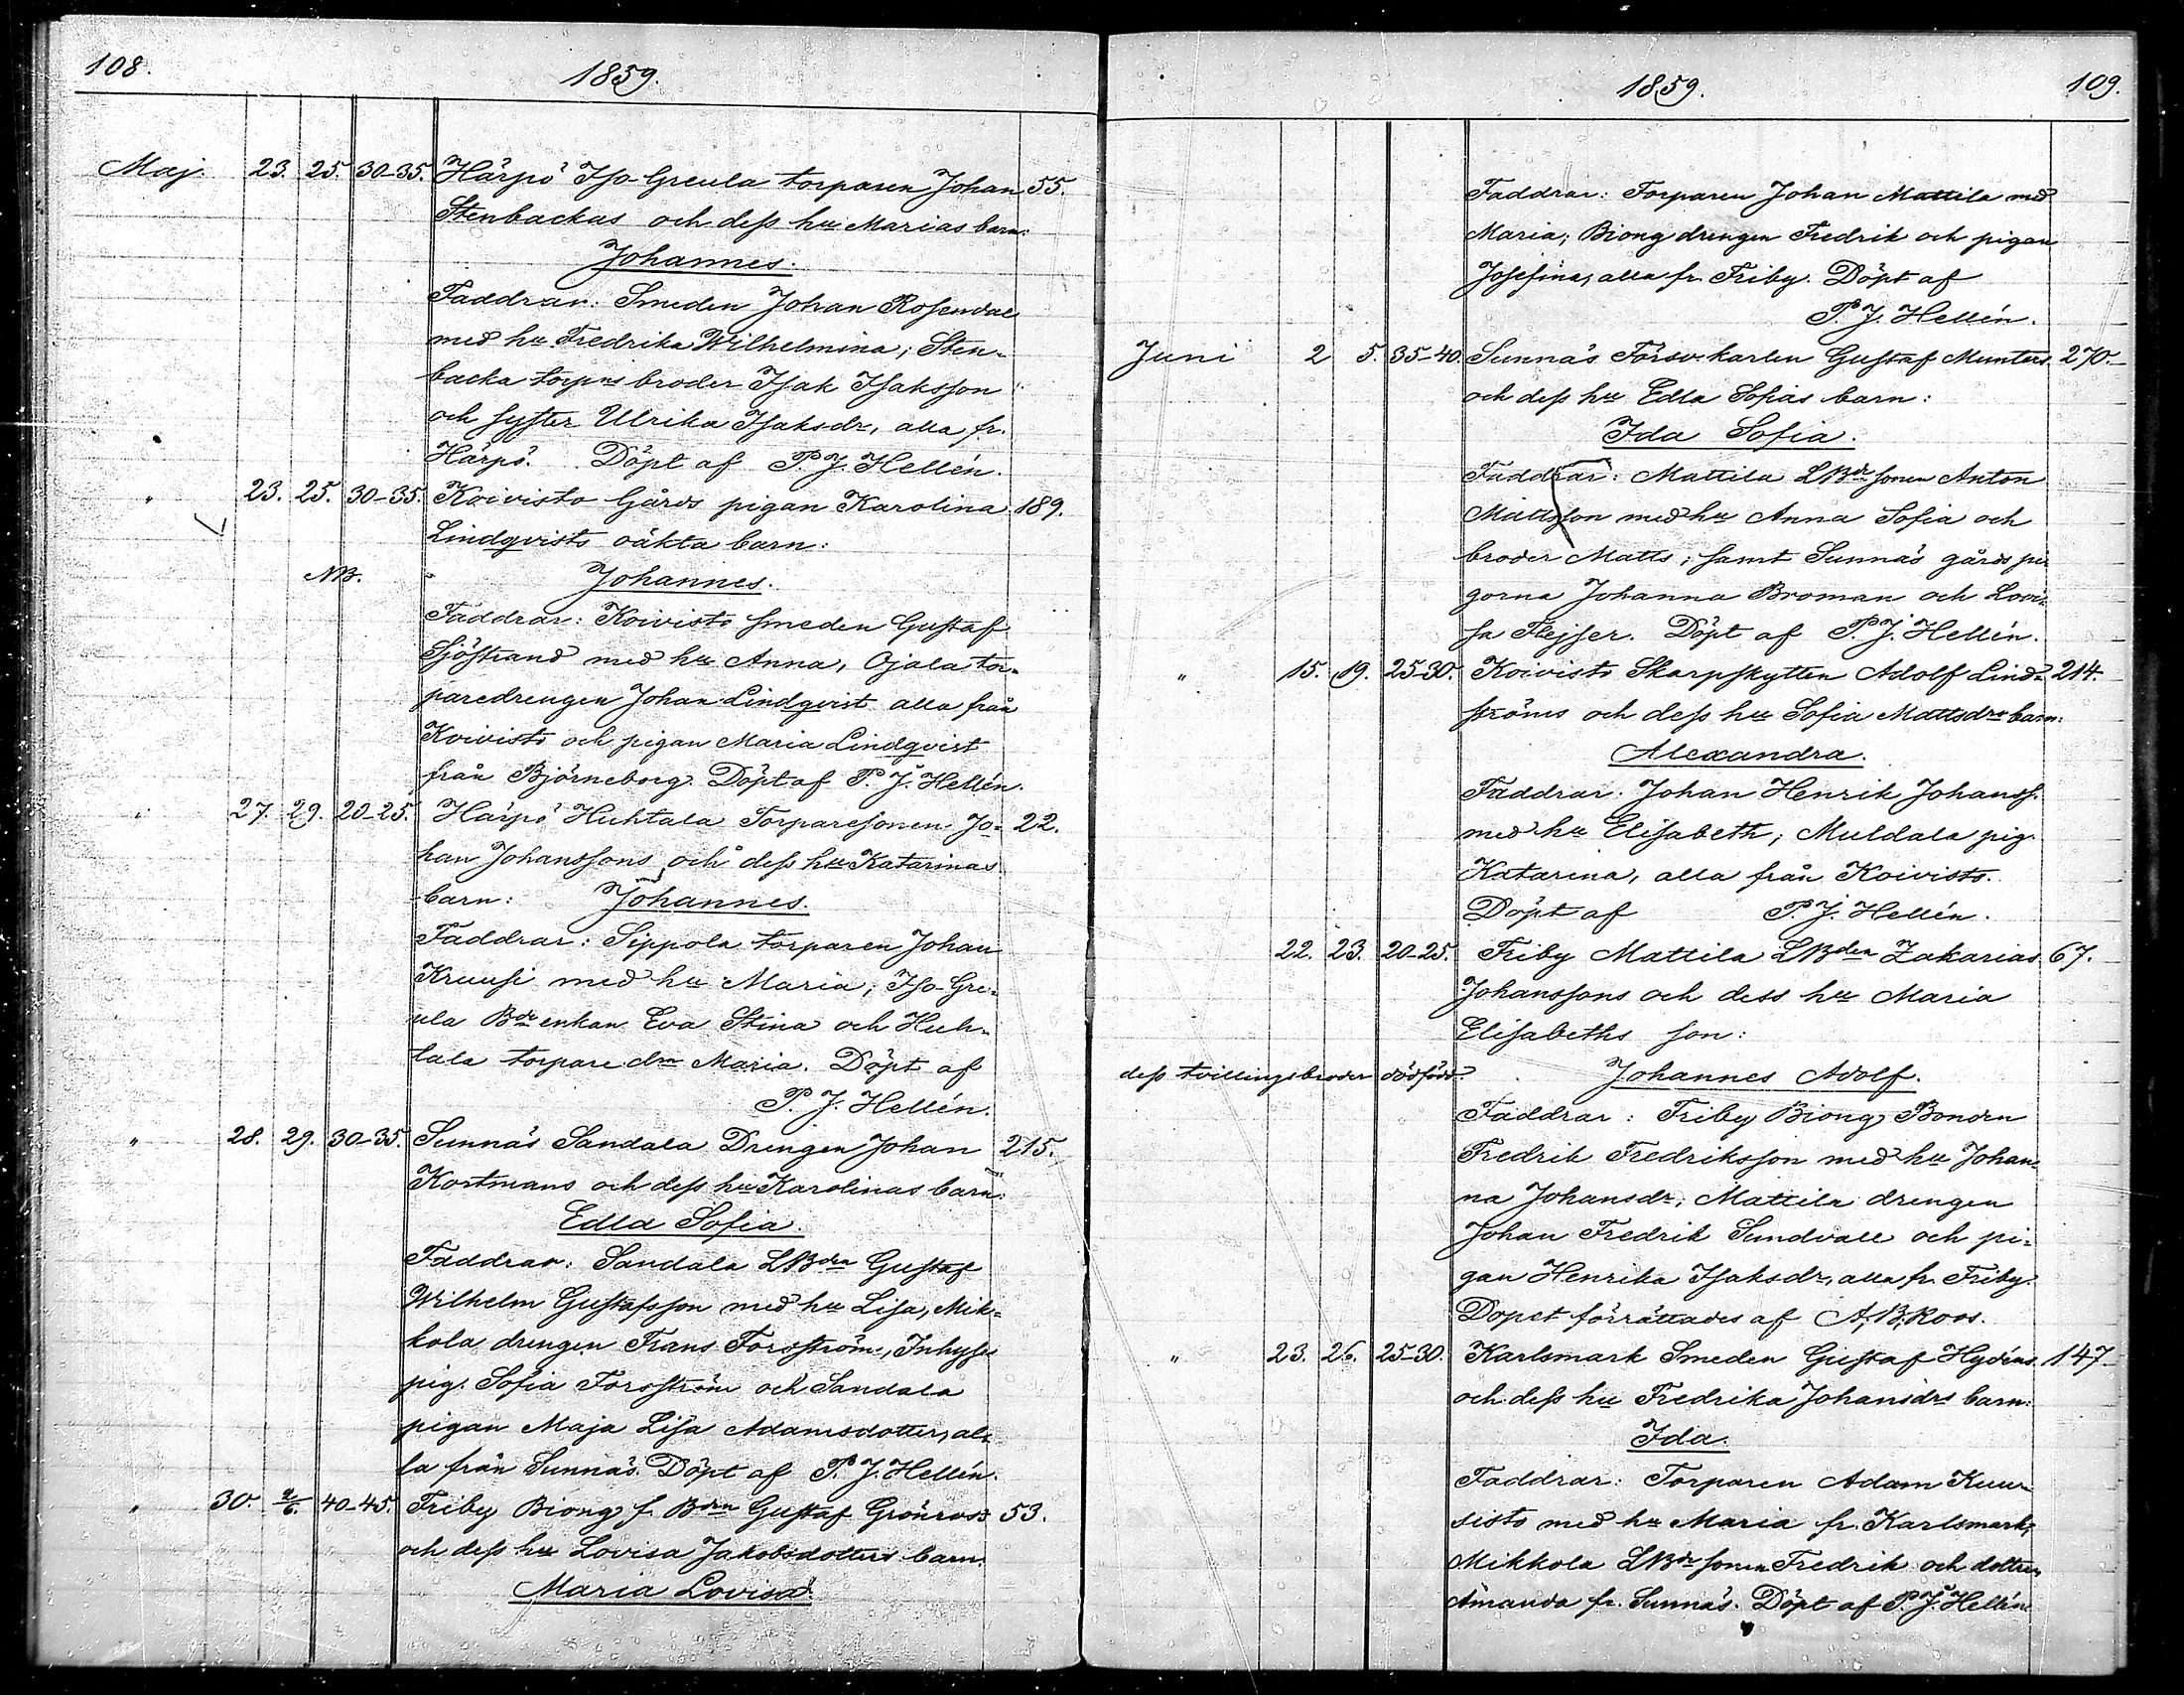 108.
1859.
Maj. 23. 25. 30-35. Härpö Iso-Greula torparen Johan 55.
Stenbackas och dess hu Marias barn:
Johannes.
Faddrar: Smeden Johan Rosendal
med hu Fredrika Wilhelmina; Sten-
backa torp:ns broder Isak Isaksson
och syster Ulrika Isaksdr, alla fr.
Härpö. Döpt af P. J. Hellén.
" 23. 25. 30-35. Koivisto Gårds pigan Karolina 189.
Lindqvists oäkta barn:
NB. Johannes.
Faddrar: Koivisto smeden Gustaf
Sjöstrand med hu Anna, Ojala tor-
paredrengen Johan Lindqvist alla från
Koivisto och pigan Maria Lindqvist
från Björneborg. Döpt af P. J. Hellén.
" 27. 29. 20-25. Härpö Huhtala Torparesonen Jo- 22.
han Johanssons och dess hu Katarinas
barn: Johannes.
Faddrar: Sippola torparen Johan
Kruusi med hu Maria; Iso-Gre-
ula Bde enkan Eva Stina och Huh-
tala torpare drn Maria. Döpt af
P. J. Hellén.
" 28. 29. 30-35. Sunnäs Sandala Drengen Johan 215.
Kortmans och dess hu Karolinas barn:
Edla Sofia.
Faddrar: Sandala LBden Gustaf
Wilhelm Gustafsson med hu Lisa, Mik-
kola drengen Frans Forsström, Inhyses
pig. Sofia Forsström och Sandala
pigan Maja Lisa Adamsdotter, al-
la från Sunnäs. Döpt af P. J. Hellén.
" 30. 2/6. 40-45. Friby Biong f. Bden Gustaf Grönroos 53.
och dess hu Lovisa Jakobsdotters barn.
Maria Lovisa.
1859.
109.
Faddrar: Torparen Johan Mattila med
Maria; Biong drengen Fredrik och pigan
Josefina, alla fr. Friby. Döpt af
P. J. Hellén.
Juni 2 5. 35-40. Sunnäs Försv. karlen Gustaf Munters 270.
och dess hu Edla Sofias barn:
Ida Sofia.
Faddrar: Mattila LBde sonen Anton
Mattsson med hu Anna Sofia och
broder Matts; samt Sunnäs gårds pi-
gorna Johanna Broman och Lovi-
sa Flejser. Döpt af P. J. Hellén.
" 15. 19. 25-30. Koivisto Skarpskytten Adolf Lind- 214.
ströms och dess hu Sofia Mattsdrs barn:
Alexandra.
Faddrar: Johan Henrik Johanss.
med hu Elisabeth; Muldala pig.
Katarina, alla från Koivisto.
Döpt af P. J. Hellén.
22. 23. 20-25. Friby Mattila LBden Zakarias 67.
Johanssons och dess hu Maria
Elisabeths son:
dess tvillingsbroder dödfödd. Johannes Adolf.
Faddrar: Friby Biong Bonden
Fredrik Fredriksson med hu Johan-
na Johansdr; Mattila drengen
Johan Fredrik Sundvall och pi-
gan Henrika Isaksdr, alla fr. Friby.
Dopet förrättades af A. B. Roos.
" 23. 26. 25-30. Karlsmark Smeden Gustaf Hydéns 147
och dess hu Fredrika Johansdrs barn:
Ida.
Faddrar: Torparen Adam Kuu-
sisto med hu Maria fr. Karlsmark;
Mikkola LBde sonen Fredrik och dottren
Amanda fr. Sunnäs. Döpt af P. J. Hellén